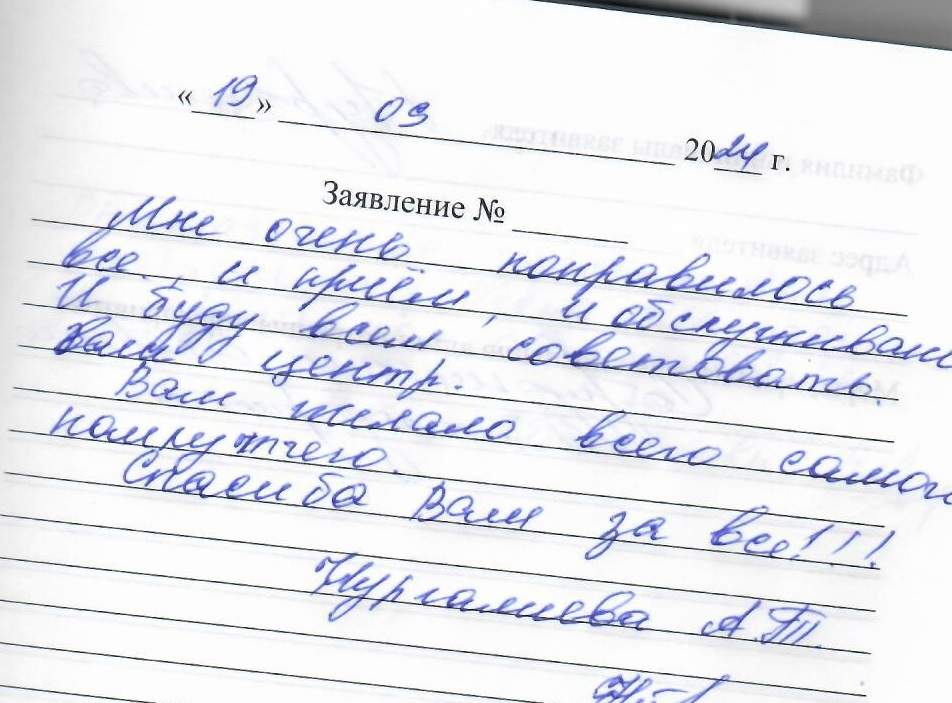 « 19 » 09 2024 г.
Заявление №
Мне очень понравилось
все. и приём, и обслуживани
И буду всем советовать.
Ваш центр.
Вам желаю всего самого
наилутчего.
Спасиба Вам за все!!!
Нургалиева А.Т.